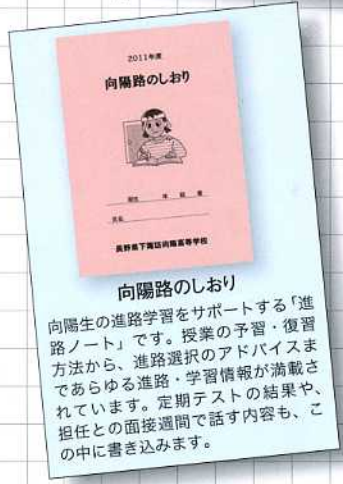 2011年度
向陽路のしおり
期生 年 組 番
氏名
長野県下諏訪向陽高等学校
向陽路のしおり
向陽生の進路学習をサポートする「進
路ノート」です。授業の予習・復習
方法から、進路選択のアドバイスま
であらゆる進路・学習情報が満載さ
れています。定期テストの結果や、
担任との面接週間で話す内容も、こ
の中に書き込みます。